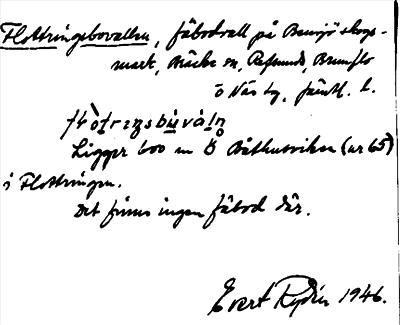 Flottringsbovallen, fäbodvall på Bensjö skogs-
mark, Bräcke sn, Refsunds, Brunflo
o Näs tg, Jämtl. l.
Ligger 600 m Ö Båthusviken (nr 65)
i Flottringen.
Det finns ingen fäbod där.
Evert Rydén 1946.